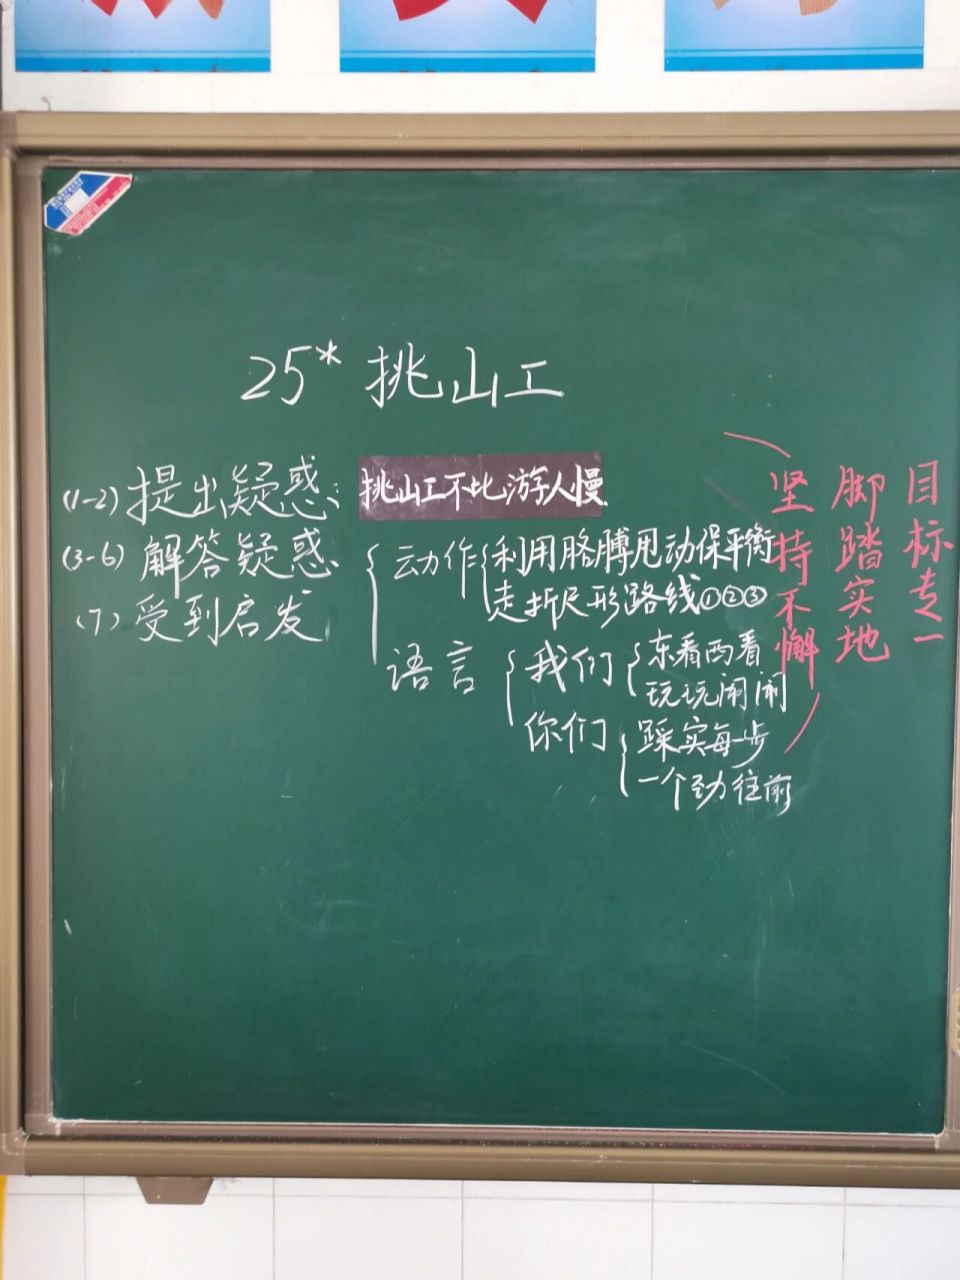 25* 挑山工
(1-2) 提出疑惑:
挑山工不比游人慢
(3-6) 解答疑惑
动作
利用胳膊甩动保平衡
走折尺形路线①②③
(7) 受到启发
语言
我们
东看西看
玩玩闹闹
你们
踩实每一步
一个劲往前
坚持不懈
脚踏实地
目标专一